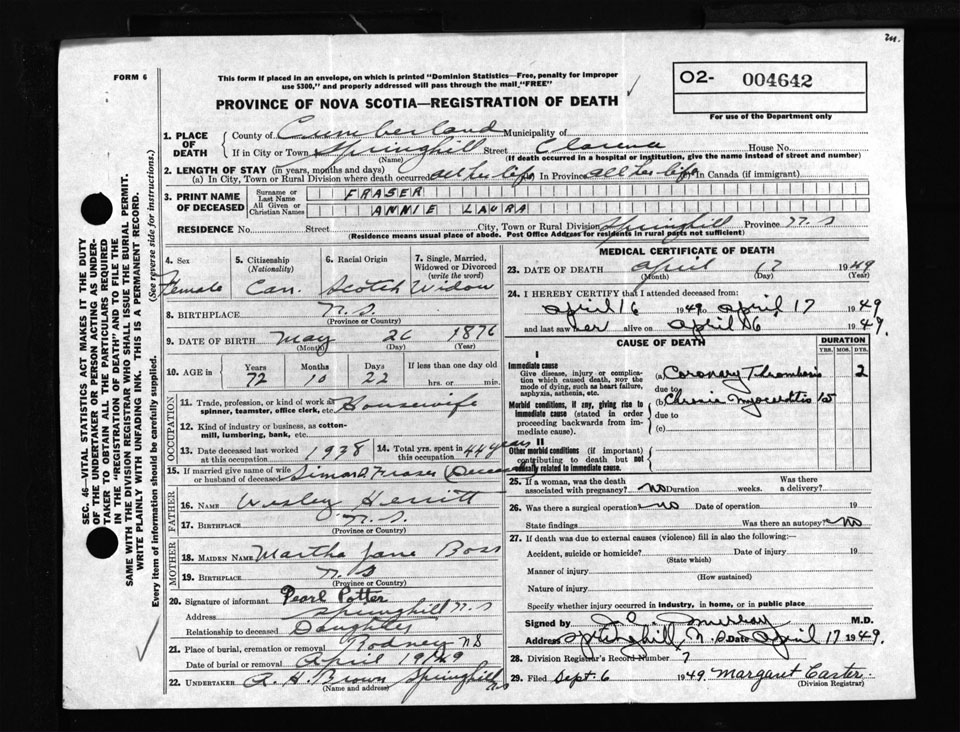 m.
FORM 6
This form if placed in an envelope, on which is printed "Dominion Statistics—Free, penalty for improper
use $300," and properly addressed will pass through the mail "FREE"
O2- 004642
For use of the Department only
PROVINCE OF NOVA SCOTIA—REGISTRATION OF DEATH
SEC. 46—VITAL STATISTICS ACT MAKES IT THE DUTY
OF THE UNDERTAKER OR PERSON ACTING AS UNDER-
TAKER TO OBTAIN ALL THE PARTICULARS REQUIRED
IN THE "REGISTRATION OF DEATH" AND TO FILE THE
SAME WITH THE DIVISION REGISTRAR WHO SHALL ISSUE THE BURIAL PERMIT.
WRITE PLAINLY WITH UNFADING INK. THIS IS A PERMANENT RECORD.
Every item of information should be carefully supplied. (See reverse side for instructions.)
1. PLACE OF DEATH County of Cumberland Municipality of
If in City or Town Springhill Street Clarena House No.
(Name) (If death occurred in a hospital or institution, give the name instead of street and number)
2. LENGTH OF STAY (in years, months and days)
(a) In City, Town or Rural Division where death occurred all her life In Province all her life in Canada (if immigrant)
3. PRINT NAME OF DECEASED Surname or Last Name FRASER
All Given or Christian Names ANNIE LAURA
RESIDENCE No. Street City, Town or Rural Division Springhill Province N.S
(Residence means usual place of abode. Post Office Address for residents in rural parts not sufficient)
4. Sex 5. Citizenship (Nationality) 6. Racial Origin 7. Single, Married, Widowed or Divorced (write the word)
Female Can. Scotch Widow
8. BIRTHPLACE N.S.
(Province or Country)
9. DATE OF BIRTH May 26 1876
(Month) (Day) (Year)
10. AGE in Years Months Days If less than one day old
72 10 22 hrs. or min.
OCCUPATION
11. Trade, profession, or kind of work as spinner, teamster, office clerk, etc. Housewife
12. Kind of industry or business, as cotton-mill, lumbering, bank, etc.
13. Date deceased last worked at this occupation 1938 14. Total yrs. spent in this occupation 44 years
15. If married give name of wife or husband of deceased Simon D. Fraser (Deceased)
FATHER
16. NAME Wesley Herritt
17. BIRTHPLACE N.S.
(Province or Country)
MOTHER
18. MAIDEN NAME Martha Jane Boss
19. BIRTHPLACE N.S
(Province or Country)
20. Signature of informant Pearl Potter
Address Springhill N.S
Relationship to deceased Daughter
21. Place of burial, cremation or removal Rodney NS
Date of burial or removal April 19/49
22. UNDERTAKER R. H. Brown Springhill N.S
(Name and address)
MEDICAL CERTIFICATE OF DEATH
23. DATE OF DEATH April 17 1949
(Month) (Day) (Year)
24. I HEREBY CERTIFY that I attended deceased from:
April 16 1949 to April 17 1949
and last saw her alive on April 16 1949.
CAUSE OF DEATH DURATION
YRS. MOS. DYS.
I
Immediate cause
Give disease, injury or complication which caused death, NOT the mode of dying, such as heart failure, asphyxia, asthenia, etc.
(a) Coronary Thrombosis 2
due to
Morbid conditions, if any, giving rise to immediate cause (stated in order proceeding backwards from immediate cause).
(b) Chronic Myocarditis 15
due to
(c)
II
Other morbid conditions (if important) contributing to death but not causally related to immediate cause.
25. If a woman, was the death associated with pregnancy? No Duration weeks. Was there a delivery?
26. Was there a surgical operation No Date of operation 19
State findings Was there an autopsy? No
27. If death was due to external causes (violence) fill in also the following:—
Accident, suicide or homicide? Date of injury 19
(State which)
Manner of injury
(How sustained)
Nature of injury
Specify whether injury occurred in industry, in home, or in public place
Signed by Murray M.D.
Address Springhill, N.S. Date April 17 1949.
28. Division Registrar's Record Number 7
29. Filed Sept. 6 1949 Margaret Carter.
(Division Registrar)